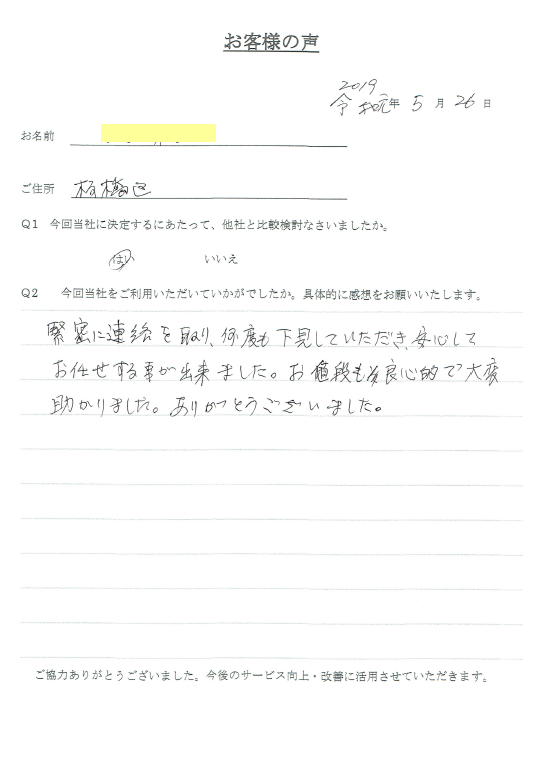 お客様の声
2019
令和元年 5月 26日
お名前
ご住所 板橋区
Q1 今回当社に決定するにあたって、他社と比較検討なさいましたか。
はい いいえ
Q2 今回当社をご利用いただいていかがでしたか。具体的に感想をお願いいたします。
緊密に連絡を取り、何度も下見していただき、安心して
お任せする事が出来ました。お値段も良心的で大変
助かりました。ありがとうございました。
ご協力ありがとうございました。今後のサービス向上・改善に活用させていただきます。